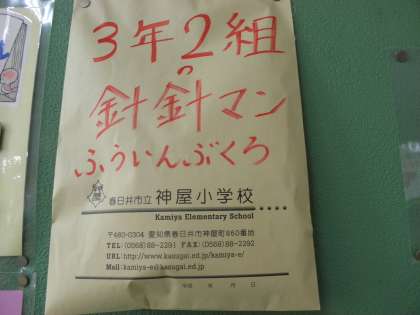 3年2組
の
針針マン
ふういんぶくろ
春日井市立 神屋小学校
Kamiya Elementary School
〒480-0304 愛知県春日井市神屋町660番地
TEL:(0568)88-2291 FAX:(0568)88-2292
URL:http://www.kasugai.ed.jp/kamiya-e/
Mail:kamiya-e@kasugai.ed.jp
令和 年 月 日